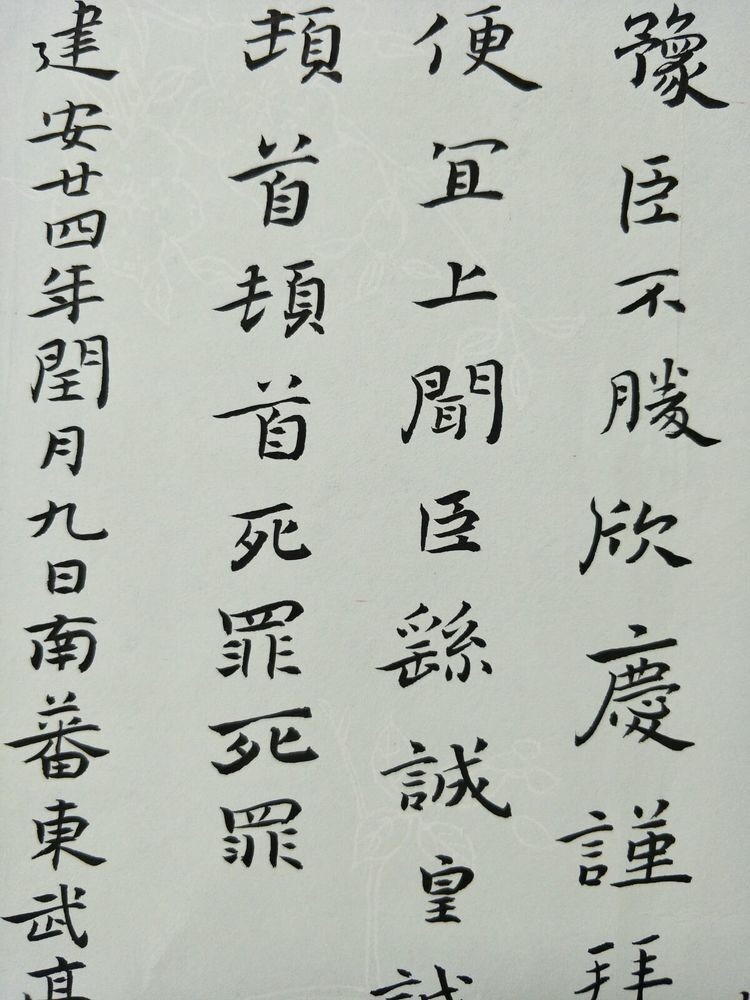 豫臣不勝欣慶謹拜
便冝上聞臣繇誠皇誠
頓首頓首死罪死罪
建安廿四年閏月九日南蕃東武亭